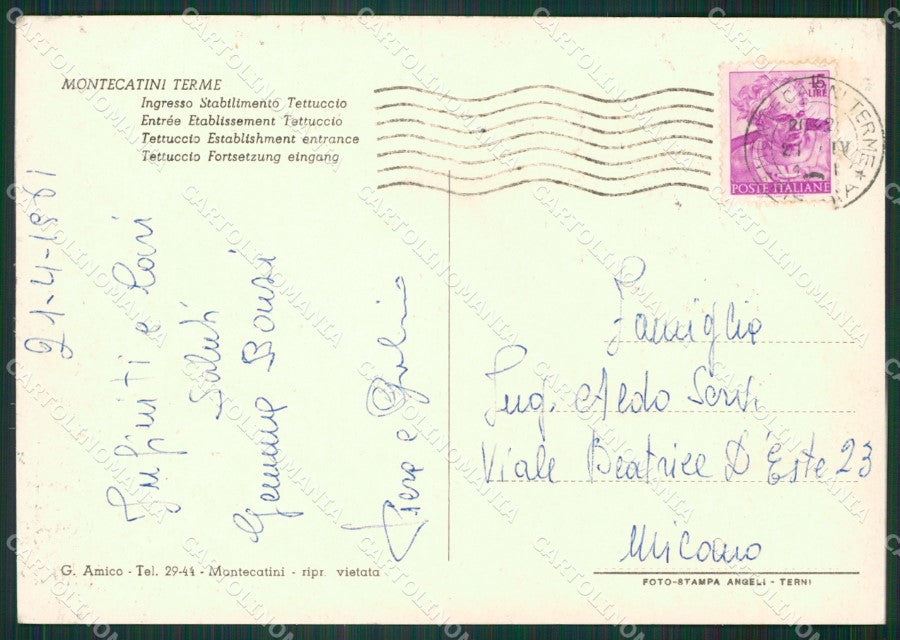 MONTECATINI TERME
Ingresso Stabilimento Tettuccio
Entrée Etablissement Tettuccio
Tettuccio Establishment entrance
Tettuccio Fortsetzung eingang
15
LIRE
POSTE ITALIANE
TERME
21-4-1961
Infiniti e cari
saluti
Gemma
Piera e
Famiglia
Ing. Aldo
Viale Beatrice D'Este 23
Milano
G. Amico - Tel. 29-44 - Montecatini - ripr. vietata
FOTO-STAMPA ANGELI - TERNI
CARTOLINOMANIA